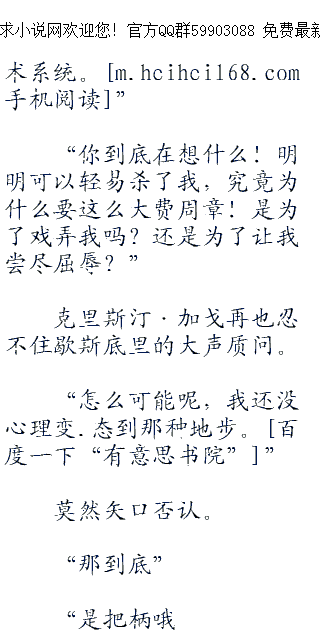 求小说网欢迎您! 官方QQ群59903088 免费最新
术系统。[m.hcihcil68.com
手机阅读]”
“你到底在想什么！明
明可以轻易杀了我，究竟为
什么要这么大费周章！是为
了戏弄我吗？还是为了让我
尝尽屈辱？”
克里斯汀·加戈再也忍
不住歇斯底里的大声质问。
“怎么可能呢，我还没
心理变.态到那种地步。[百
度一下“有意思书院”]”
莫然矢口否认。
“那到底”
“是把柄哦